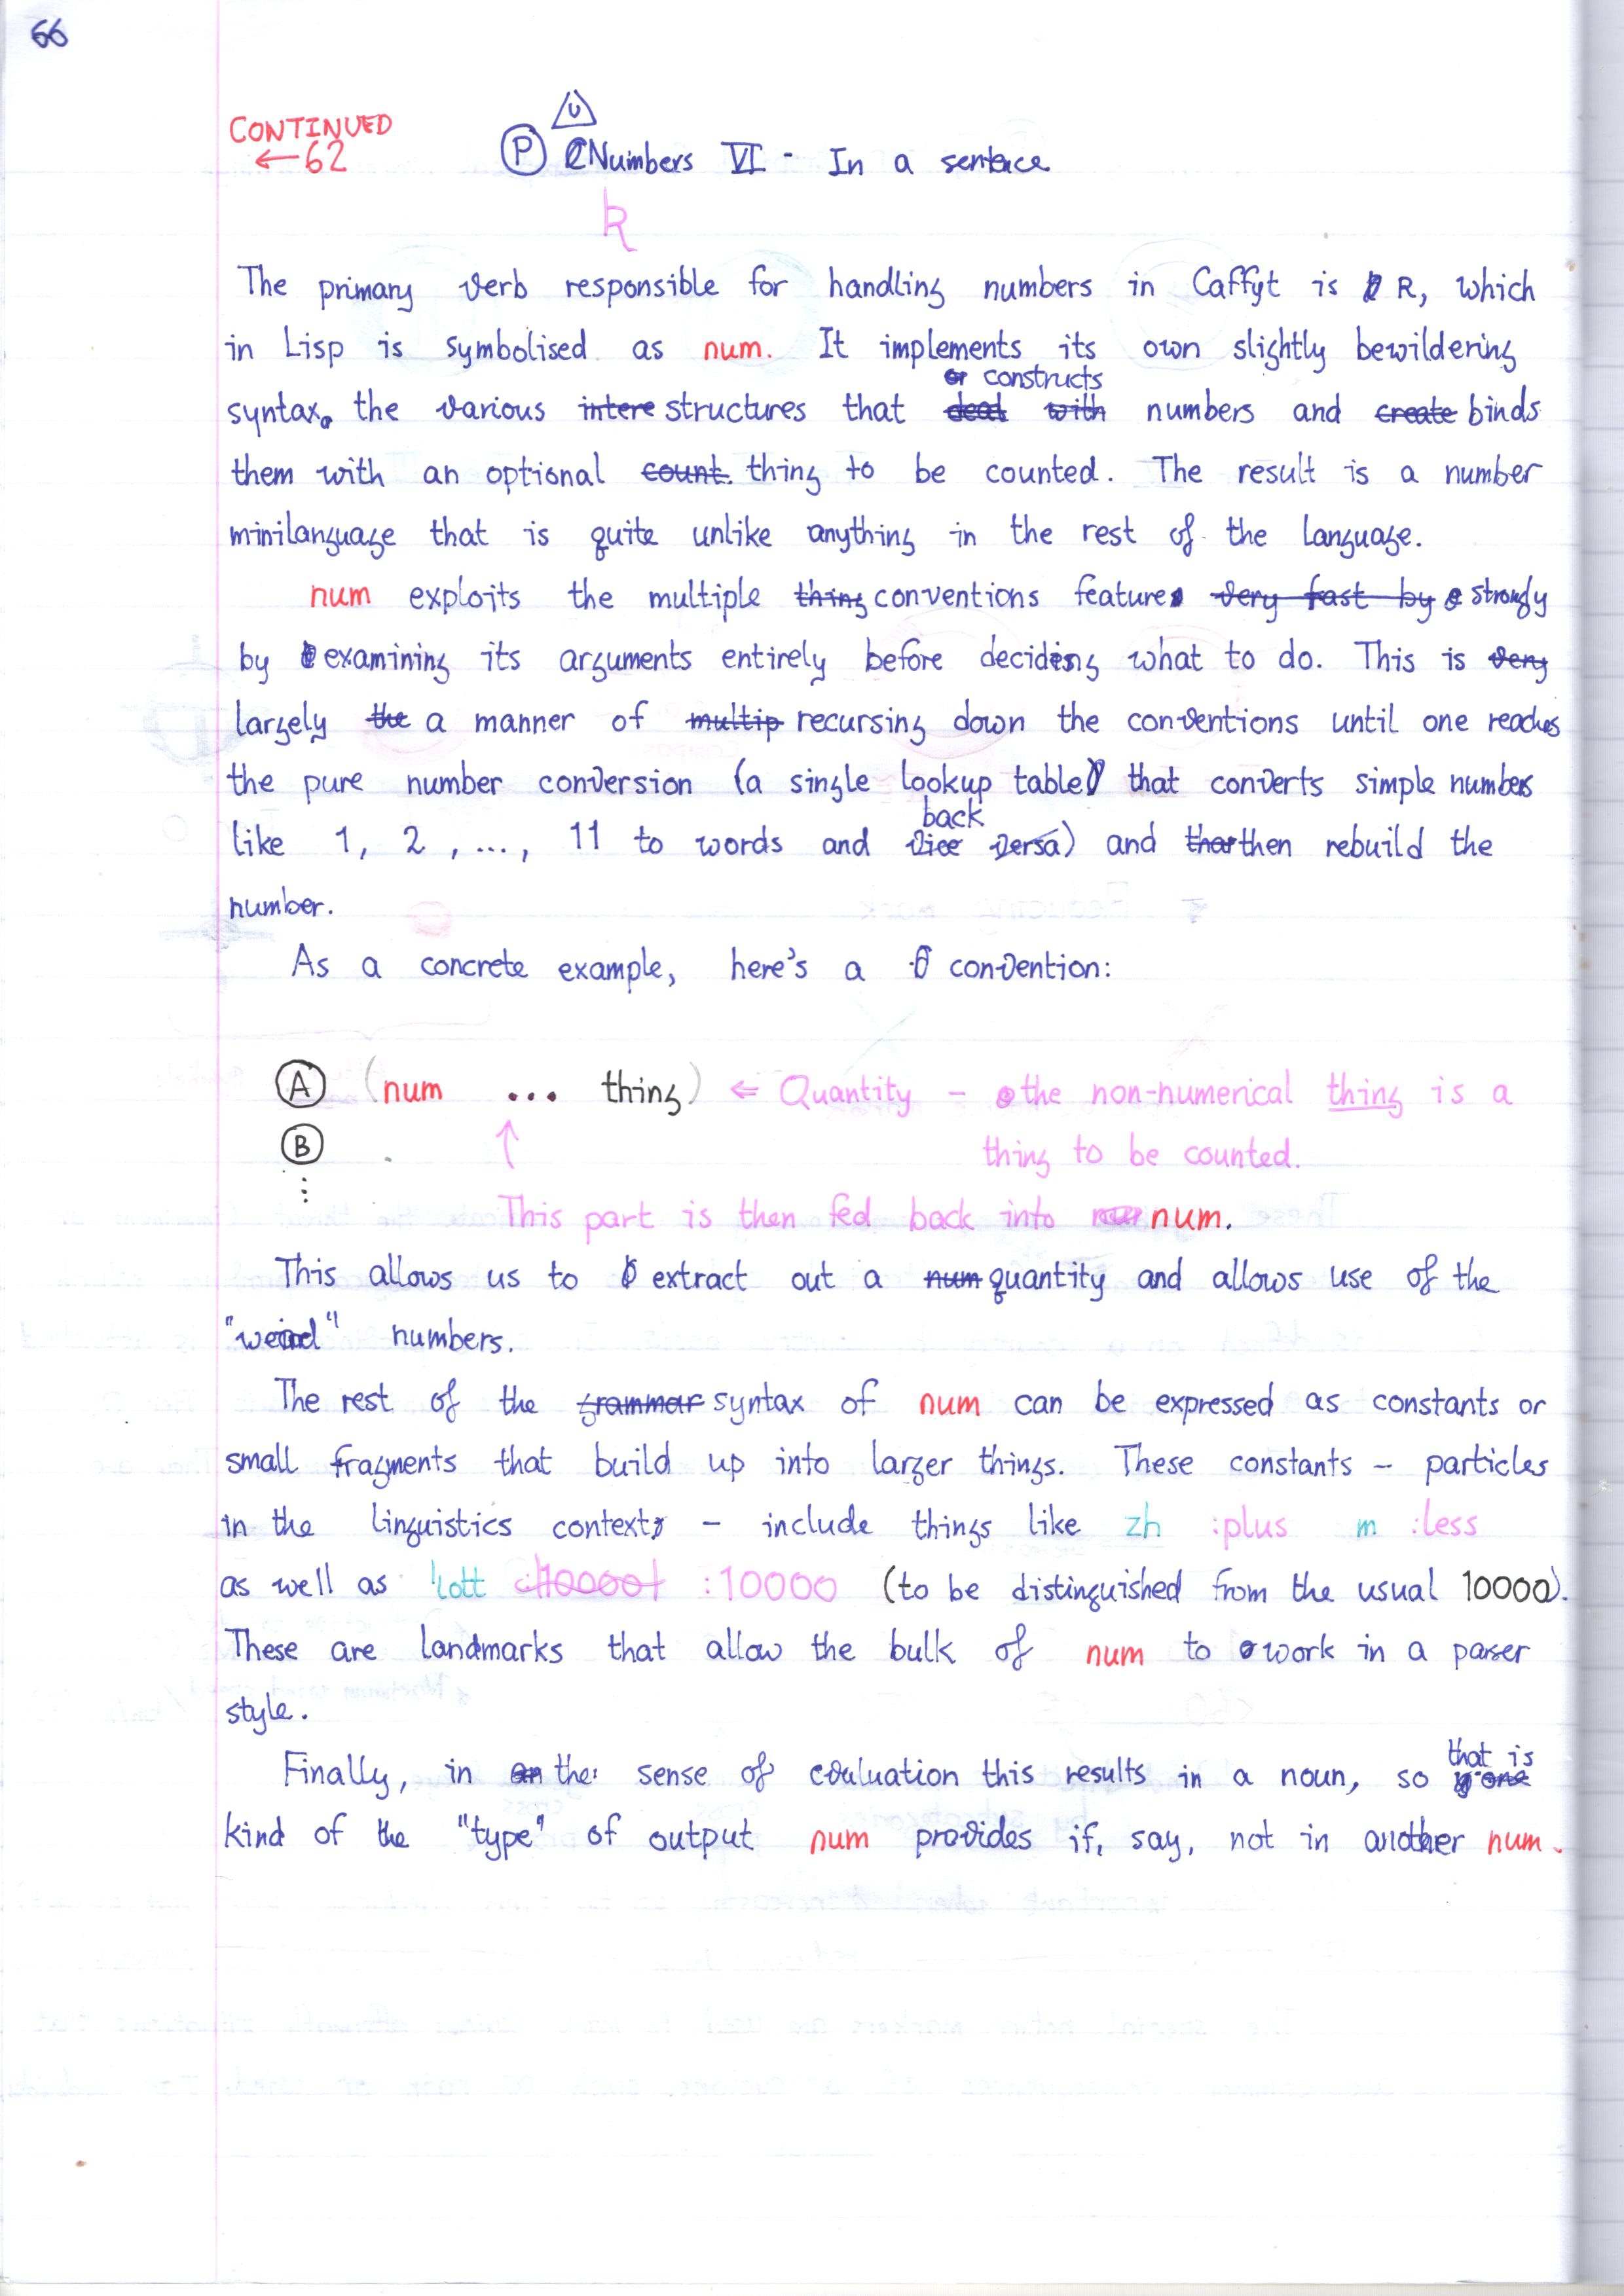 66
CONTINUED
←62
U
P Numbers VI - In a sentence
R
The primary verb responsible for handling numbers in Caffyt is R, which
in Lisp is symbolised as num. It implements its own slightly bewildering
or constructs
syntax. the various intere structures that deal with numbers and create binds
them with an optional count. thing to be counted. The result is a number
minilanguage that is quite unlike anything in the rest of the language.
num exploits the multiple thing conventions feature very fast by strongly
by examining its arguments entirely before deciding what to do. This is very
largely the a manner of multip recursing down the conventions until one reaches
the pure number conversion (a single lookup table that converts simple numbers
back
like 1, 2, ..., 11 to words and vice versa) and then rebuild the
number.
As a concrete example, here's a convention:
A (num ... thing) ⇐ Quantity - the non-numerical thing is a
B thing to be counted.
⋮ ↑
This part is then fed back into num.
This allows us to extract out a num quantity and allows use of the
"weird" numbers.
The rest of the grammar syntax of num can be expressed as constants or
small fragments that build up into larger things. These constants - particles
in the linguistics context - include things like zh :plus m :less
as well as 'lott :10000 :10000 (to be distinguished from the usual 10000).
These are landmarks that allow the bulk of num to work in a parser
style.
that is
Finally, in the sense of evaluation this results in a noun, so
kind of the "type" of output num provides if, say, not in another num.